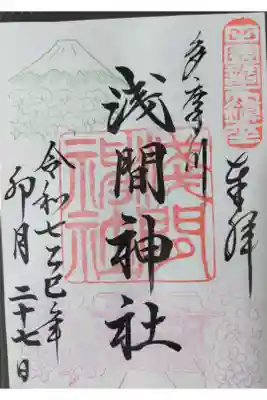 奉拝
多摩川
浅間神社
令和七乙巳年
卯月二十七日
淺間
神社